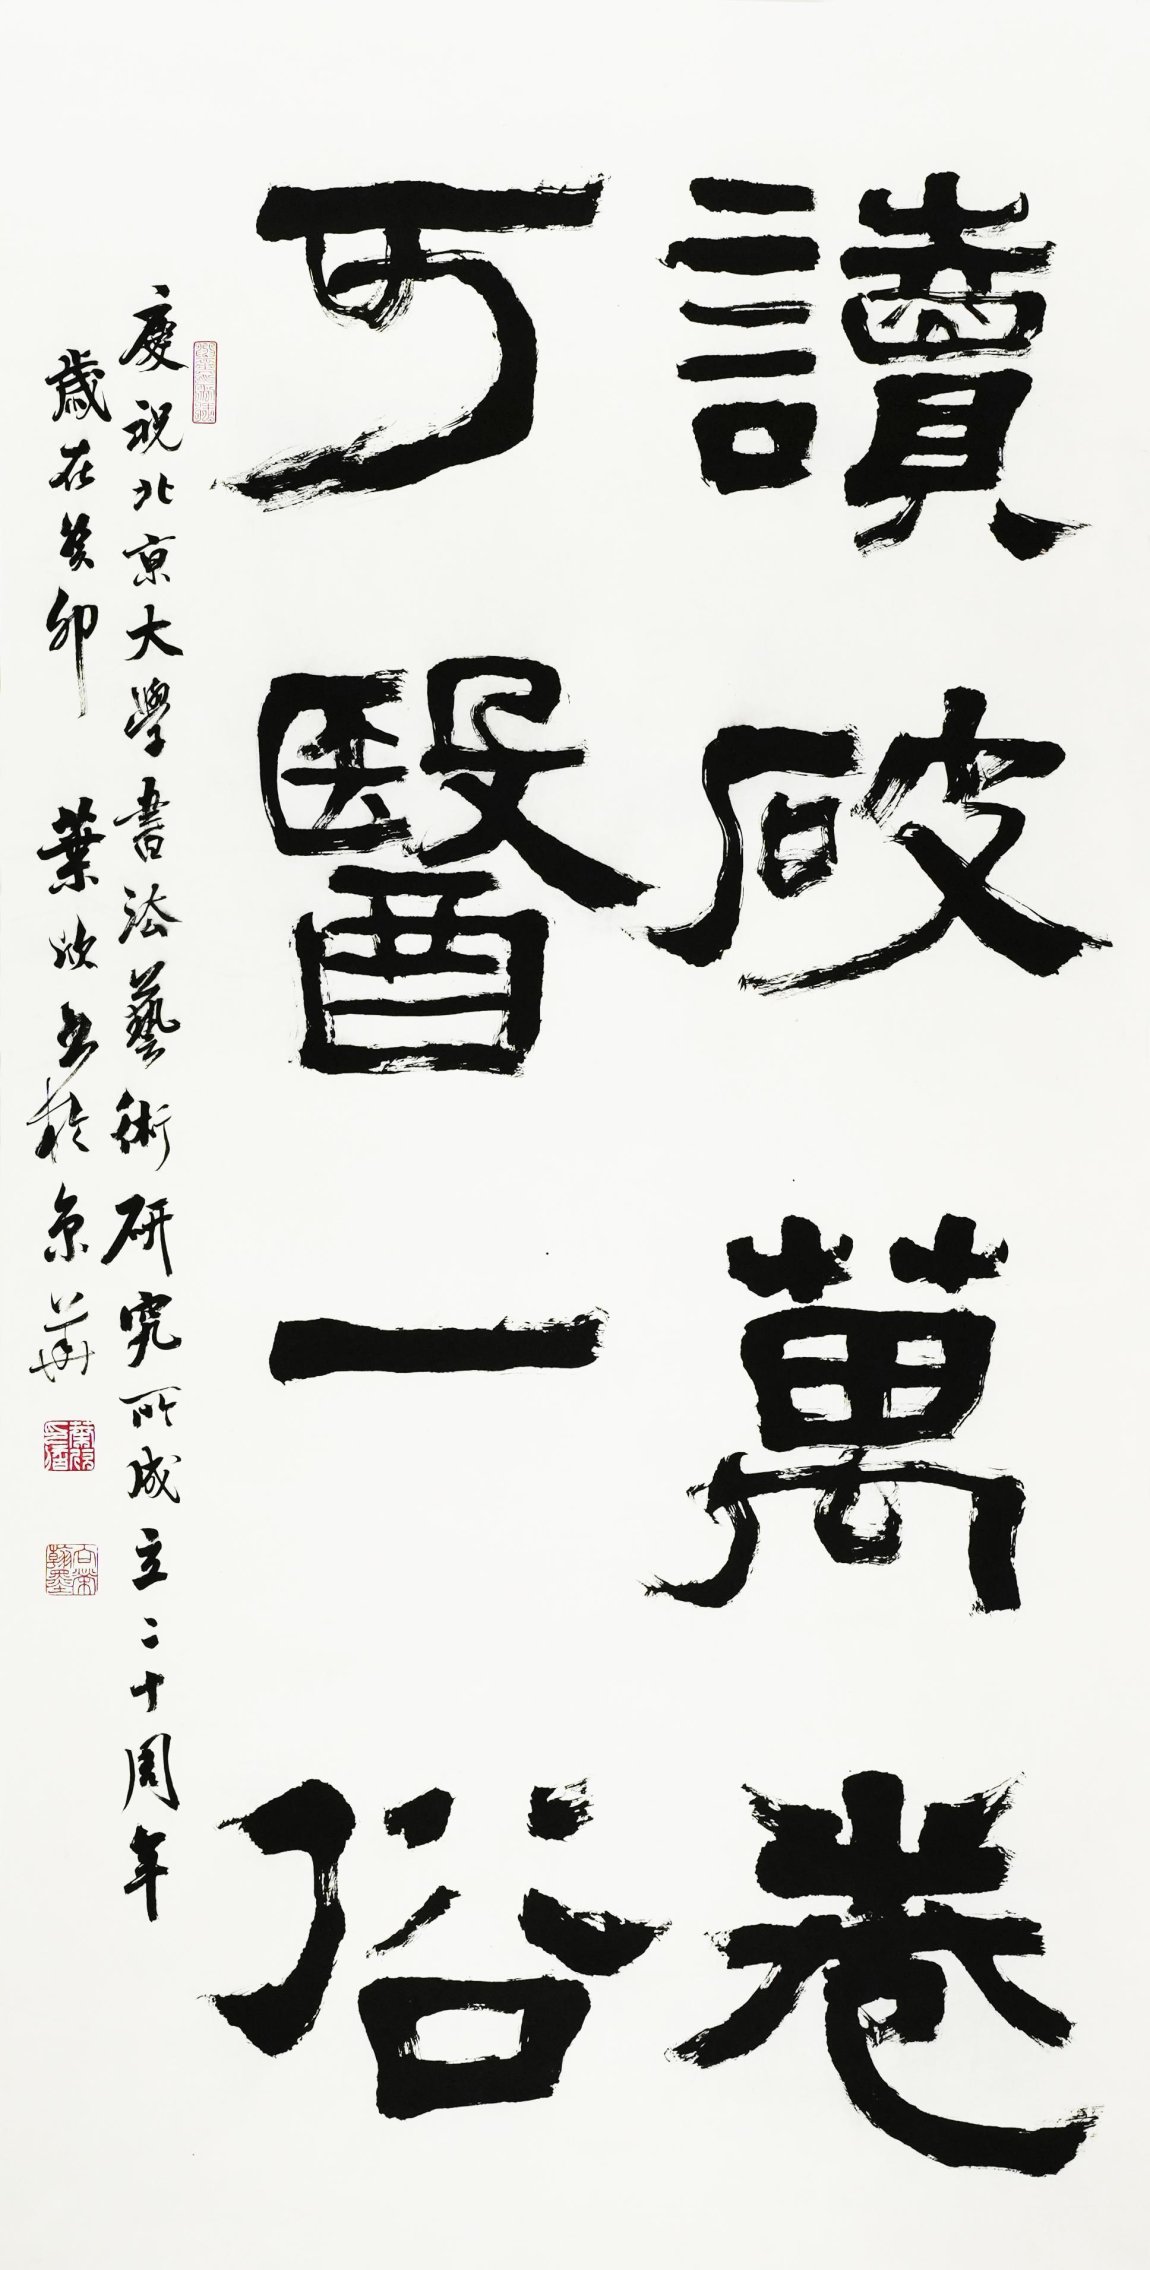 讀破萬卷
可醫一俗
慶祝北京大學書法藝術研究所成立二十周年
歲在癸卯 葉欣書於京華